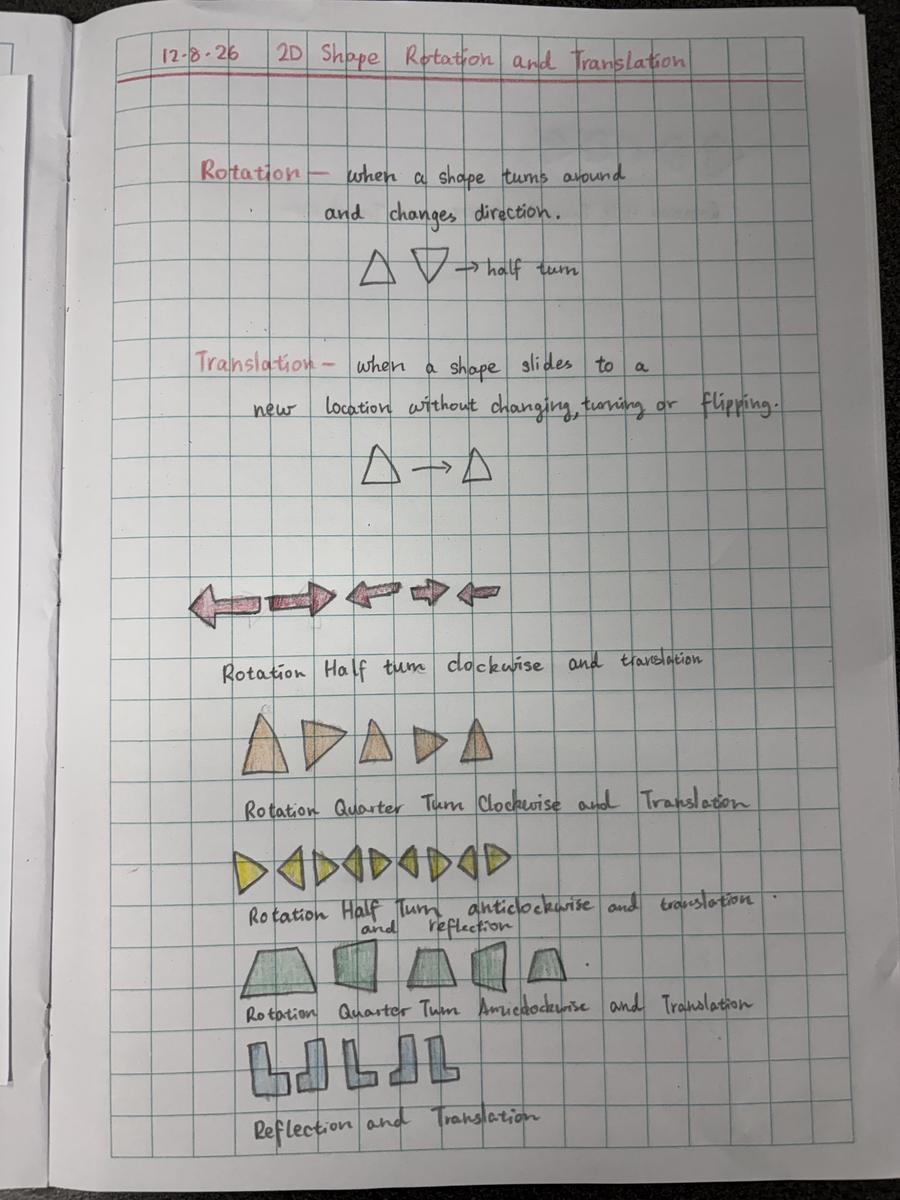 12-8-26 2D Shape Rotation and Translation
Rotation — when a shape turns around
and changes direction.
→ half turn
Translation — when a shape slides to a
new location without changing, turning or flipping.
Rotation Half turn clockwise and translation
Rotation Quarter Turn Clockwise and Translation
Rotation Half Turn anticlockwise and translation
and reflection
Rotation Quarter Turn Anticlockwise and Translation
Reflection and Translation